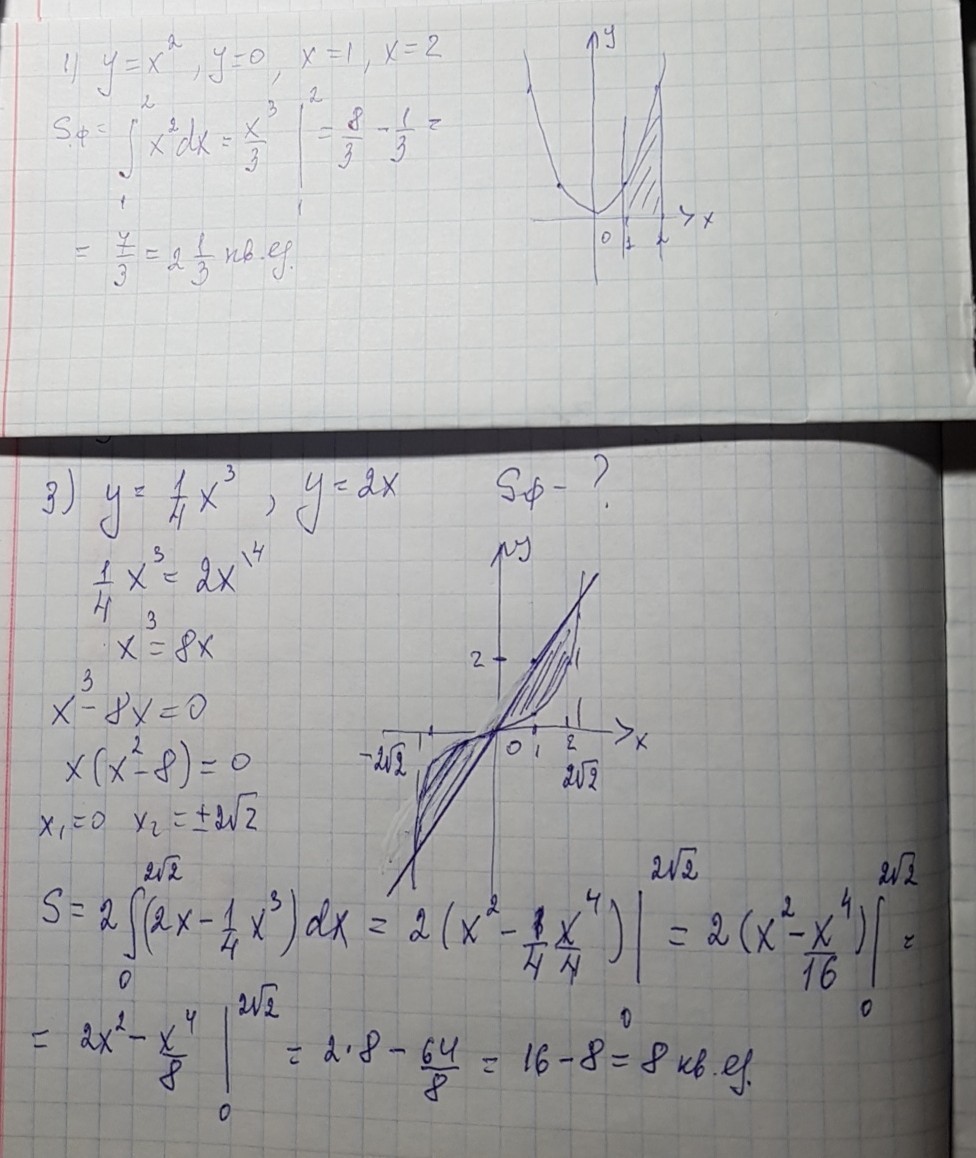 1) y = x², y=0, x=1, x=2
Sф = ∫₁² x²dx = x³/3 |₁² = 8/3 - 1/3 =
= 7/3 = 2 1/3 кв.ед.
y
0 1 2 x
3) y = 1/4 x³, y = 2x Sф - ?
1/4 x³ = 2x \4
x³ = 8x
x³ - 8x = 0
x(x² - 8) = 0
x₁ = 0 x₂ = ±2√2
y
2
-2√2 0 1 2 x
2√2
S = 2 ∫₀^2√2 (2x - 1/4 x³) dx = 2(x² - 1/4 x⁴/4) |₀^2√2 = 2(x² - x⁴/16) |₀^2√2 =
= 2x² - x⁴/8 |₀^2√2 = 2·8 - 64/8 = 16 - 8 = 8 кв.ед.